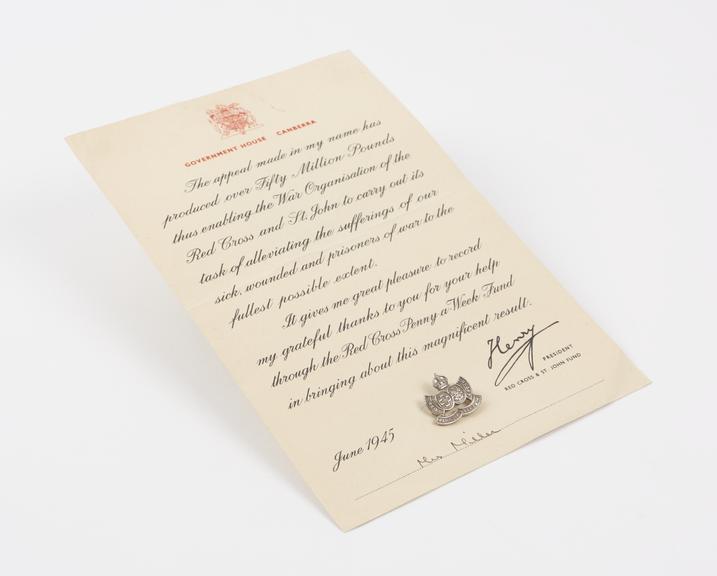 GOVERNMENT HOUSE CANBERRA
The appeal made in my name has
produced over Fifty Million Pounds
thus enabling the War Organisation of the
Red Cross and St. John to carry out its
task of alleviating the sufferings of our
sick, wounded and prisoners of war to the
fullest possible extent.
It gives me great pleasure to record
my grateful thanks to you for your help
through the Red Cross Penny a Week Fund
in bringing about this magnificent result.
Henry
PRESIDENT
RED CROSS & ST. JOHN FUND
June 1945
Mrs Miller